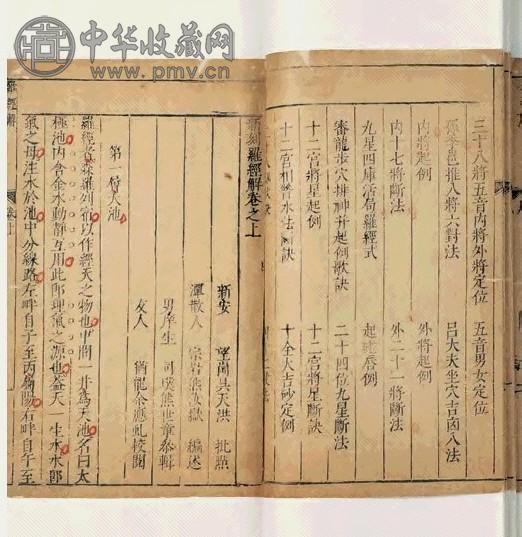 中华收藏网
www.pmv.cn
三十八將五音內將外將定位 五音男女定位
推八將六對法 呂大夫坐穴吉凶八法
內將起例 外將起例
內十七將斷法 外二十一將斷法
九星四庫活局羅經式 起 例
審龍步穴排神并起例歌訣 二十四位九星斷法
十二宮將星起例 十二宮將星斷訣
十二宮相替水法訣 十全大吉砂定例
新刻羅經解卷之上
新安 望崗吳天洪 批點
潭散人 宗 熊汝嶽 編述
男庠生 熊世 輯
友人 猶龍余應虬校閱
第一層天池
羅經者森羅列宿以作經天之物也中間一井為天池名曰太
極池內含金水動靜互用此即理氣之源也蓋天一生水水即
氣之母注水於池中分線路左畔自子至丙為陽右畔自午至
羅經解
卷上